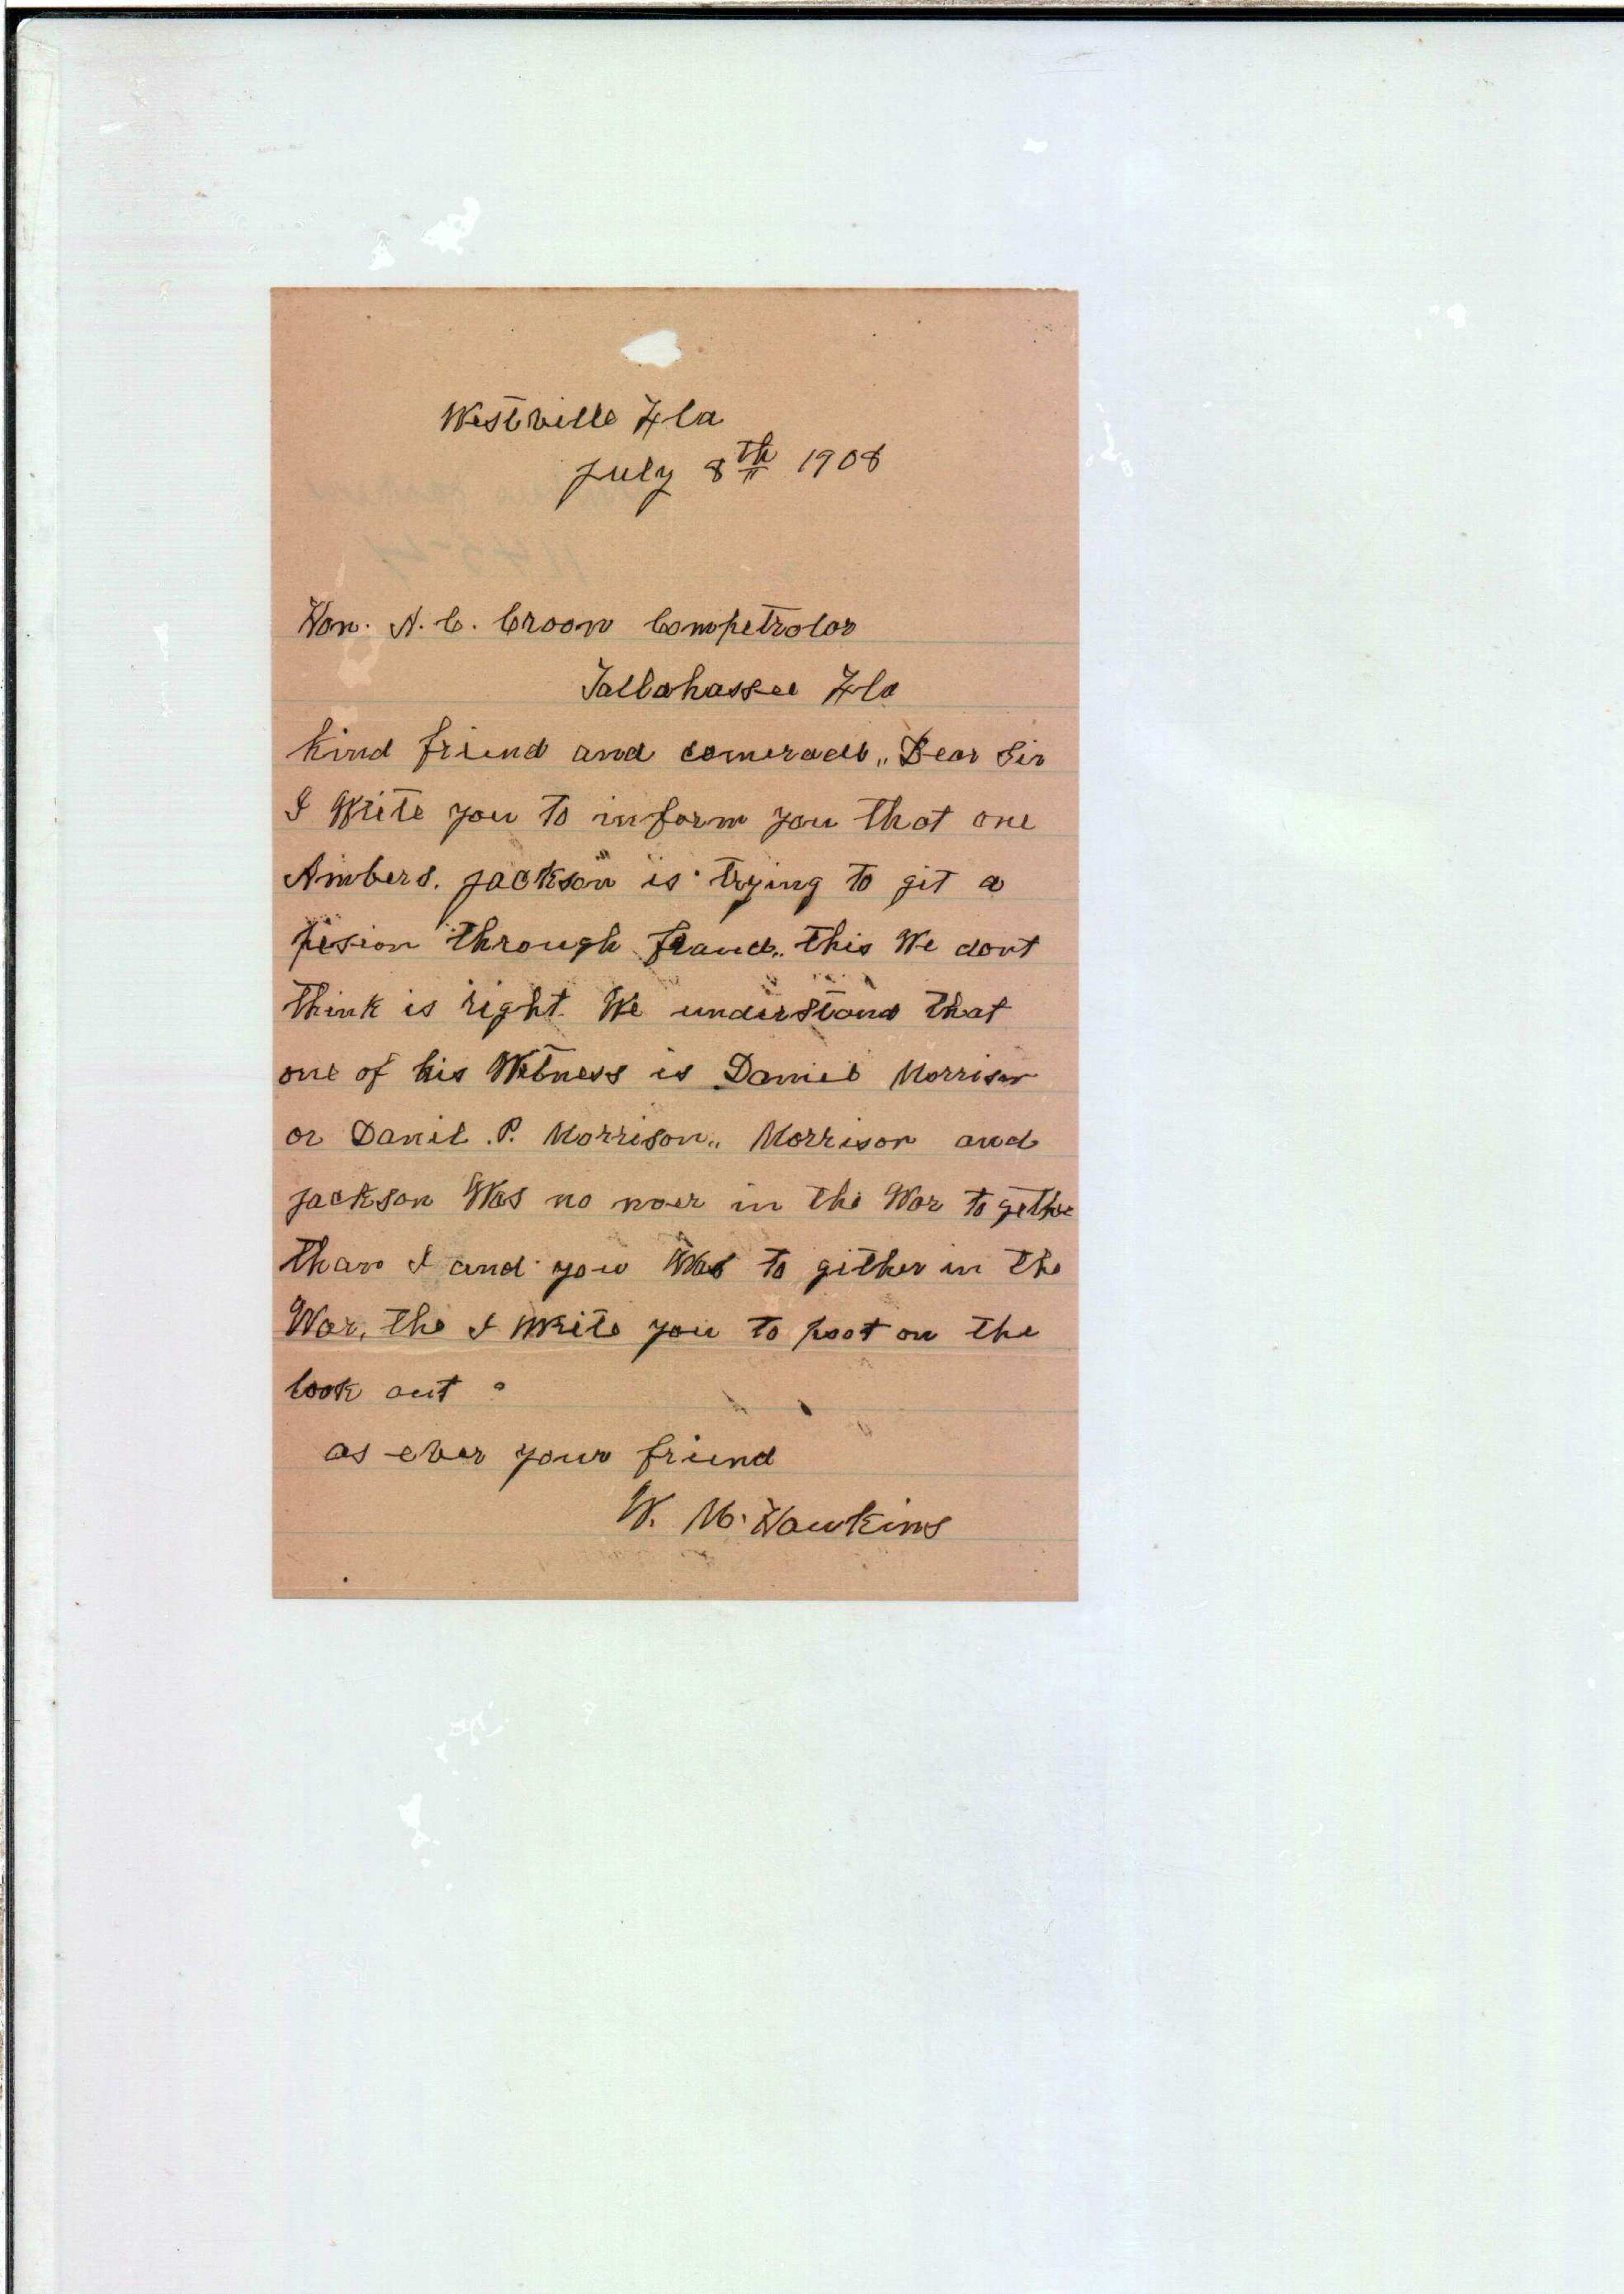 Westville Fla
July 8th 1908
Hon. A. C. Croom Competrolor
Tallahassee Fla
kind friend and comerade,, Dear Sir
I Write you to inform you that one
Ambers. Jackson is trying to git a
pesion through fraud,, this We dont
think is right. We understand that
one of his Witness is Daniel Morrison
or Danil. P. Morrison,, Morrison and
Jackson Was no moer in the War to gether
than I and you Was to gither in the
War, the I Write you to poot on the
look out.
as ever your friend
W. M. Hawkins